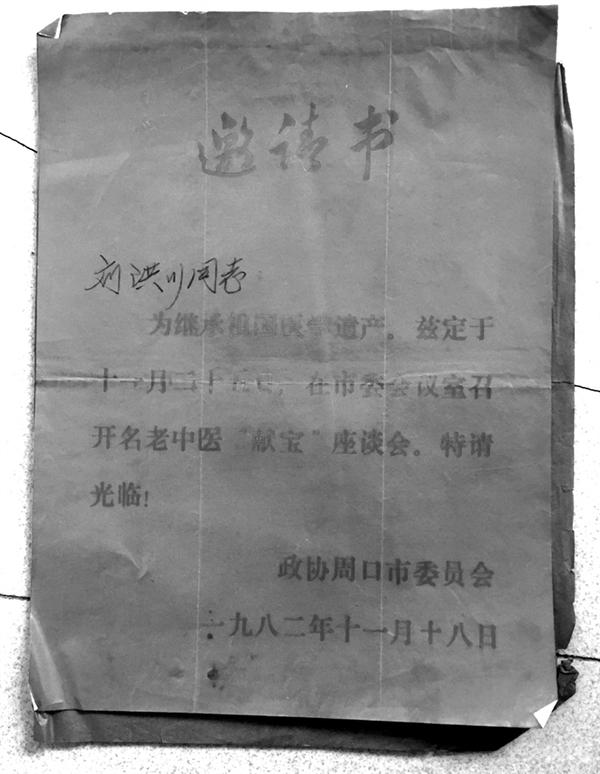 邀请书
刘洪川同志
为继承祖国医学遗产。兹定于
十一月二十五日，在市委会议室召
开名老中医“献宝”座谈会。特请
光临！
政协周口市委员会
一九八二年十一月十八日